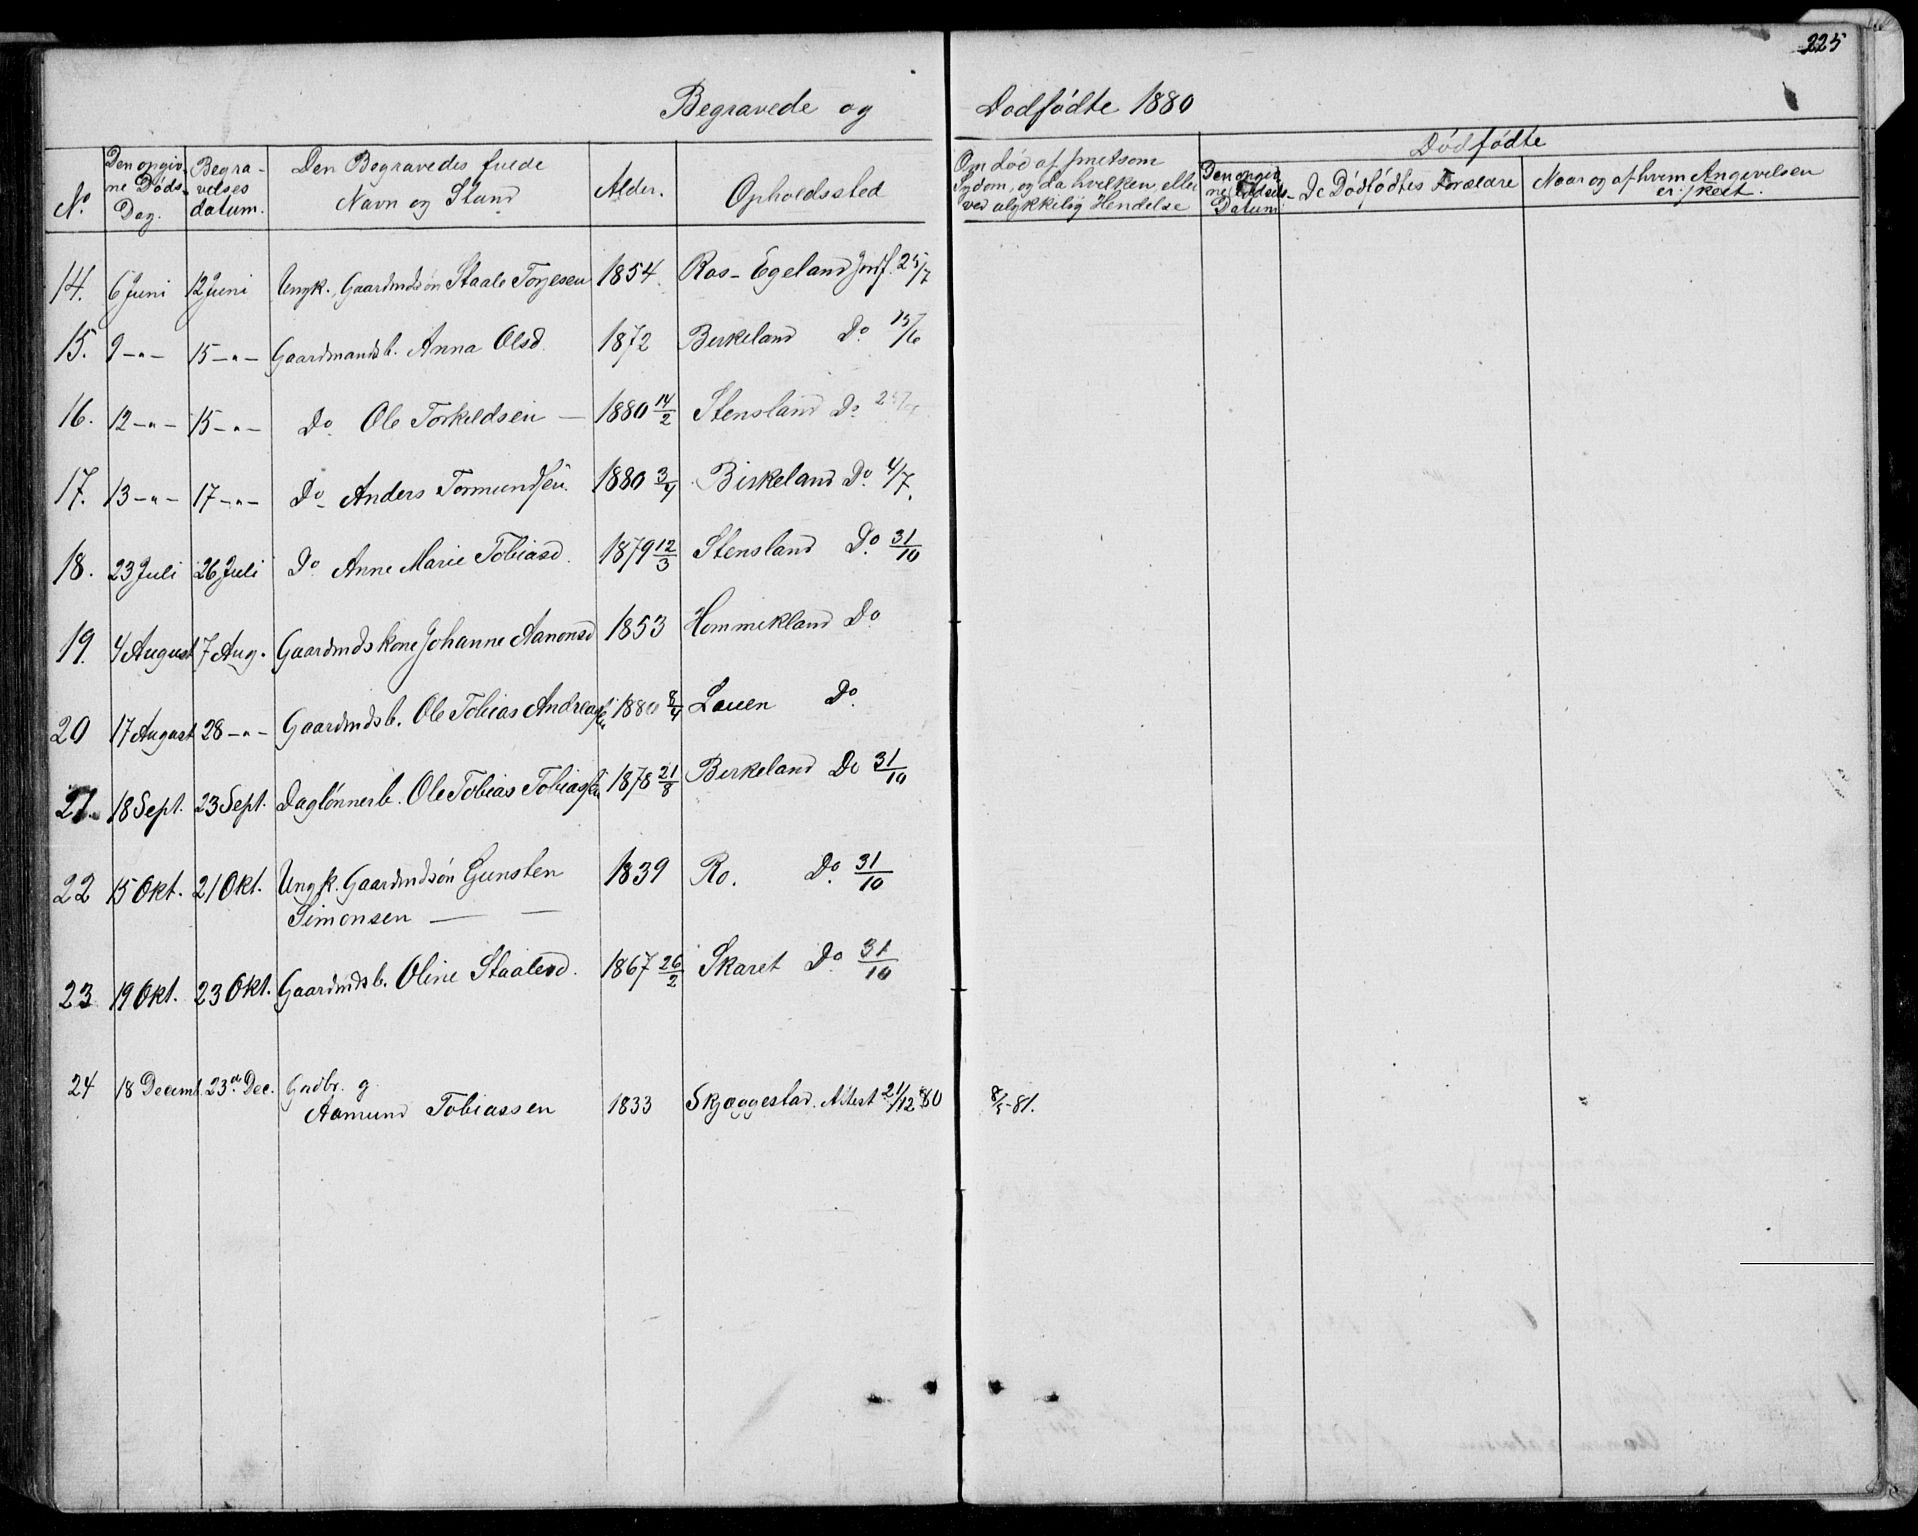 225
Begravede og Dødfødte 1880
No
Den opgivne Døds-Dag.
Begravelses datum.
Den Begravedes fulde Navn og Stand
Alder.
Opholdssted
Om død af smitsom Sygdom, og da hvilken, eller ved ulykkelig Hendelse
Dødfødte
Den opgivne Fødsels-Datum
De Dødfødtes Forældre
Naar og af hvem Angivelsen er skeet.
14. 6 Juni 12 Juni Ungk. Gaardmdsøn Staale Torjesen 1854. Ros-Egeland Jordf. 25/7
15. 9 -"- 15 -"- Gaardmandsb. Anna Olsd. 1872 Birkeland Do 15/6
16. 12 -"- 15 -"- Do Ole Torkildsen — 1880 14/2 Stensland Do
17. 13 -"- 17 -"- Do Anders Tormundsen. 1880 3/4 Birkeland Do 4/7.
18. 23 Juli 26 Juli Do Anne Marie Tobiasd. 1879 12/3 Stensland Do 31/10
19. 4 August 7 Aug. Gaardmdskone Johanne Aanonsd 1853 Hommekland Do
20 17 August 28 -"- Gaardmdsb. Ole Tobias Andreassen 1880 8/4 Lauen Do
21. 18 Sept. 23 Sept. Daglønnerb. Ole Tobias Tobiassen 1878 21/8 Berkeland Do 31/10
22 15 Okt. 21 Okt. Ungk. Gaardmdsøn Gunsten
Simonsen — — 1839 Ro. Do 31/10
23 19 Okt. 23 Okt. Gaardmdsb. Oline Staalesd. 1867 26/2 Skaret Do 31/10
24 18 Decembr. 23de Dec. Grdbr. g.
Aamund Tobiassen 1833 Skjæggestad. Attest 21/12 80 8/5-81.